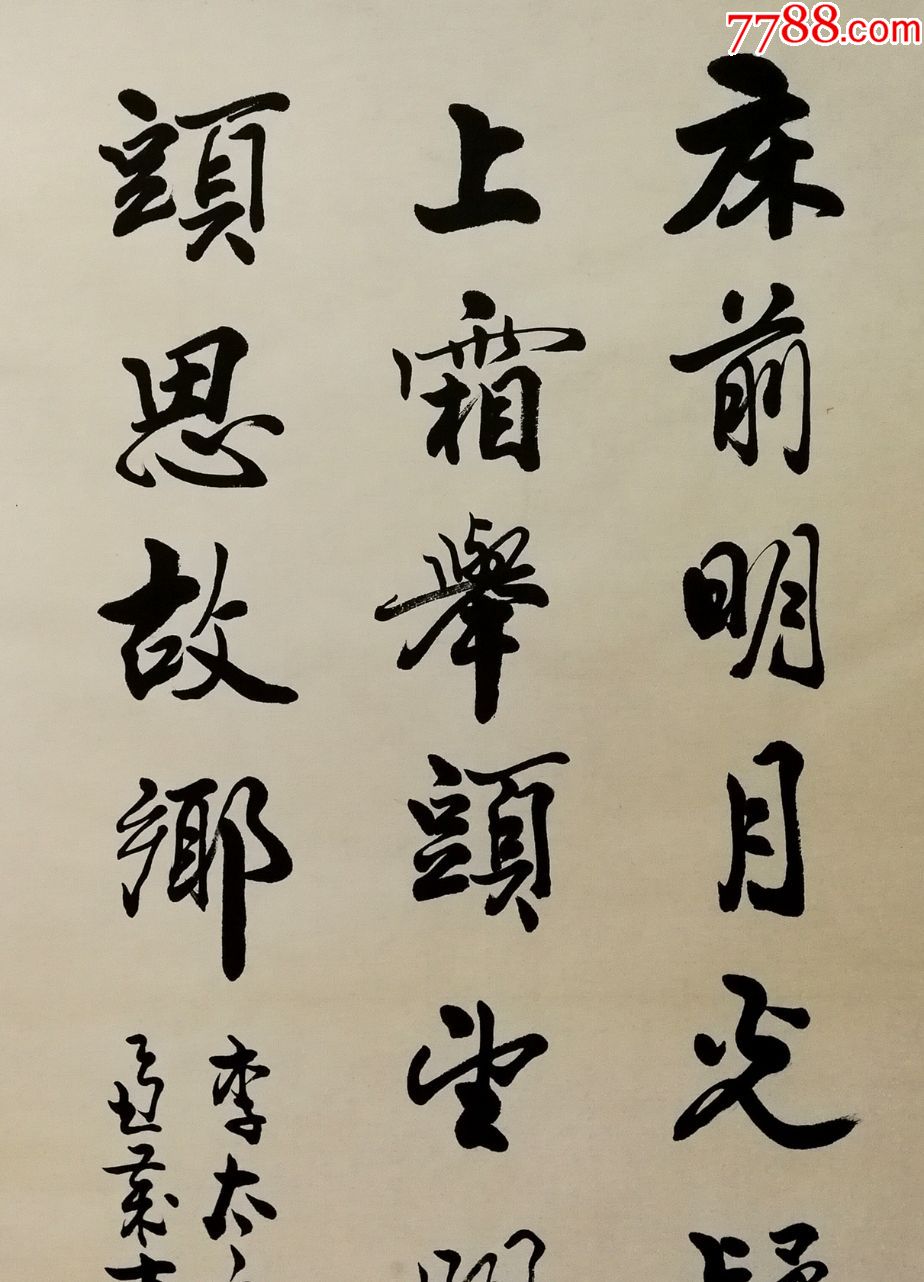 7788.com
床前明月光疑
上霜舉頭望明
頭思故鄉
李太白